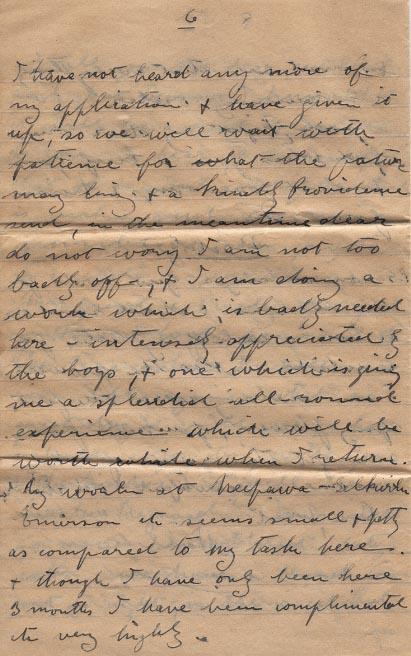 6
I have not heard any more of
my application & have given it
up, so we will wait with
patience for what the future
may bring & a kindly Providence
send, in the meantime dear
do not worry I am not too
badly off, & I am doing a
work which is badly needed
here - intensely appreciated by
the boys, & one which is giving
me a splendid all-round
experience which will be
worth while when I return.
My work at Neepawa - Selkirk
Emerson etc seems small & petty
as compared to my task here.
& though I have only been here
3 months I have been complimented
etc very highly.